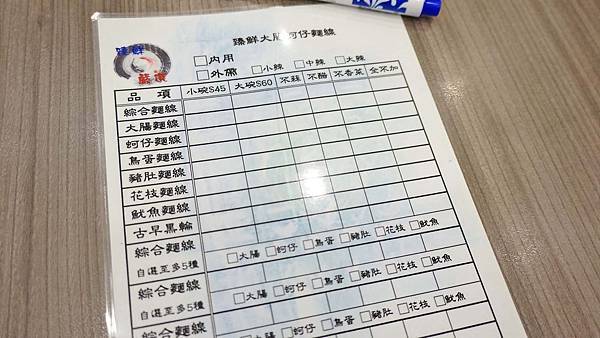 臻鮮
藝演
臻鮮大腸蚵仔麵線
□內用
□外帶 □小辣 □中辣 □大辣
品項 小碗$45 大碗$60 不蒜 不醋 不香菜 全不加
綜合麵線
大腸麵線
蚵仔麵線
鳥蛋麵線
豬肚麵線
花枝麵線
魷魚麵線
古早黑輪
綜合麵線 □大腸 □蚵仔 □鳥蛋 □豬肚 □花枝 □魷魚
自選至多5種
綜合麵線 □大腸 □蚵仔 □鳥蛋 □豬肚 □花枝 □魷魚
自選至多5種
綜合麵線 □大腸 □蚵仔 □鳥蛋 □豬肚 □花枝 □魷魚